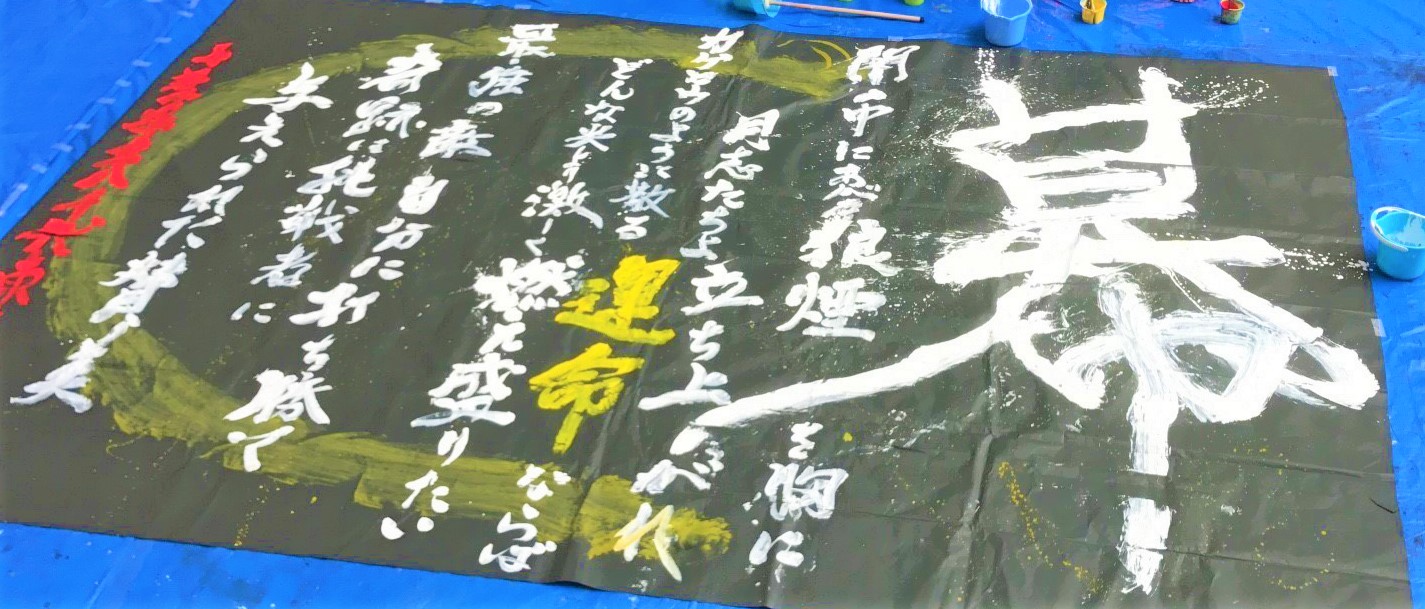 幕
狼煙を胸に
同志たちよ立ち上がれ
カゲロウのように散る運命ならば
どんな炎より激しく燃え盛りたい
最強の敵自分に打ち勝て
奇跡は挑戦者に
与えられた